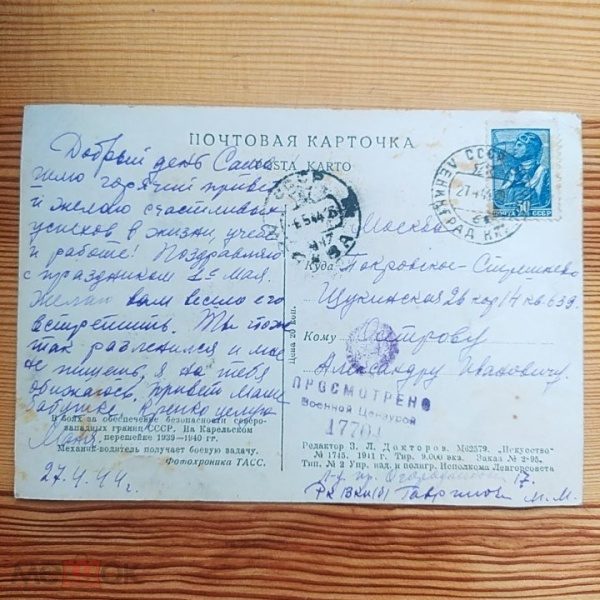 ПОЧТОВАЯ КАРТОЧКА
POSTA KARTO
Добрый день Саша
шлю горячий привет
и желаю счастливых
успехов в жизни, учебе
и работе! Поздравляю
с праздником 1ое Мая.
Желаю вам весело его
встретить. Ты тоже
так разленился и мне
не пишешь, я на тебя
обижаюсь, привет Маше
бабушке, Крепко целую
Маня.
27.4.44г.
В боях за обеспечение безопасности северо-
западных границ СССР. На Карельском
перешейке 1939—1940 гг.
Механик-водитель получает боевую задачу.
Фотохроника ТАСС.
Цена 20 коп.
СССР
ЛЕНИНГРАД
27
ПОЧТА СССР
30
СССР
МОСКВА
Москва
Куда Покровское-Стрешнево
Щукинская 26 кор 14 кв 639.
Кому Петрову
Александру Ивановичу.
ПРОСМОТРЕНО
Военной Цензурой
17701
Редактор З. Л. Докторов. М62579. „Искусство“
№ 1745. 1941 г. Тир. 9.000 экз. Заказ № 2-95.
Тип. № 2 Упр. изд. и полигр. Исполкома Ленгорсовета
17.
М.М.